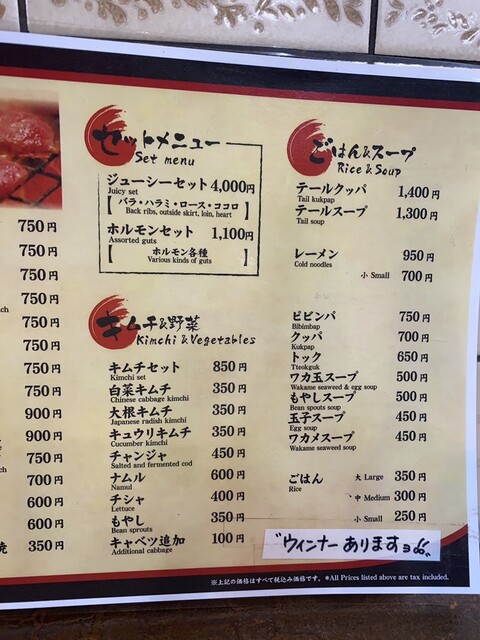 750円
750円
750円
750円
ch
750円
750円
750円
900円
900円
750円
700円
600円
600円
焼 350円
セットメニュー
Set menu
ジューシーセット 4,000円
Juicy set
【 バラ・ハラミ・ロース・ココロ 】
Back ribs, outside skirt, loin, heart
ホルモンセット 1,100円
Assorted guts
【 ホルモン各種 】
Various kinds of guts
キムチ&野菜
Kimchi & Vegetables
キムチセット 850円
Kimchi set
白菜キムチ 350円
Chinese cabbage kimchi
大根キムチ 350円
Japanese radish kimchi
キュウリキムチ 350円
Cucumber kimchi
チャンジャ 450円
Salted and fermented cod
ナムル 600円
Namul
チシャ 400円
Lettuce
もやし 350円
Bean sprouts
キャベツ追加 100円
Additional cabbage
ごはん&スープ
Rice & Soup
テールクッパ 1,400円
Tail kukpap
テールスープ 1,300円
Tail soup
レーメン 950円
Cold noodles
小 Small 700円
ビビンバ 750円
Bibimbap
クッパ 700円
Kukpap
トック 650円
Tteokguk
ワカメ玉スープ 500円
Wakame seaweed & egg soup
もやしスープ 500円
Bean spouts soup
玉子スープ 450円
Egg soup
ワカメスープ 450円
Wakame seaweed soup
ごはん 大 Large 350円
Rice
中 Medium 300円
小 Small 250円
"ウィンナー あります
※上記の価格はすべて税込み価格です。 *All Prices listed above are tax included.